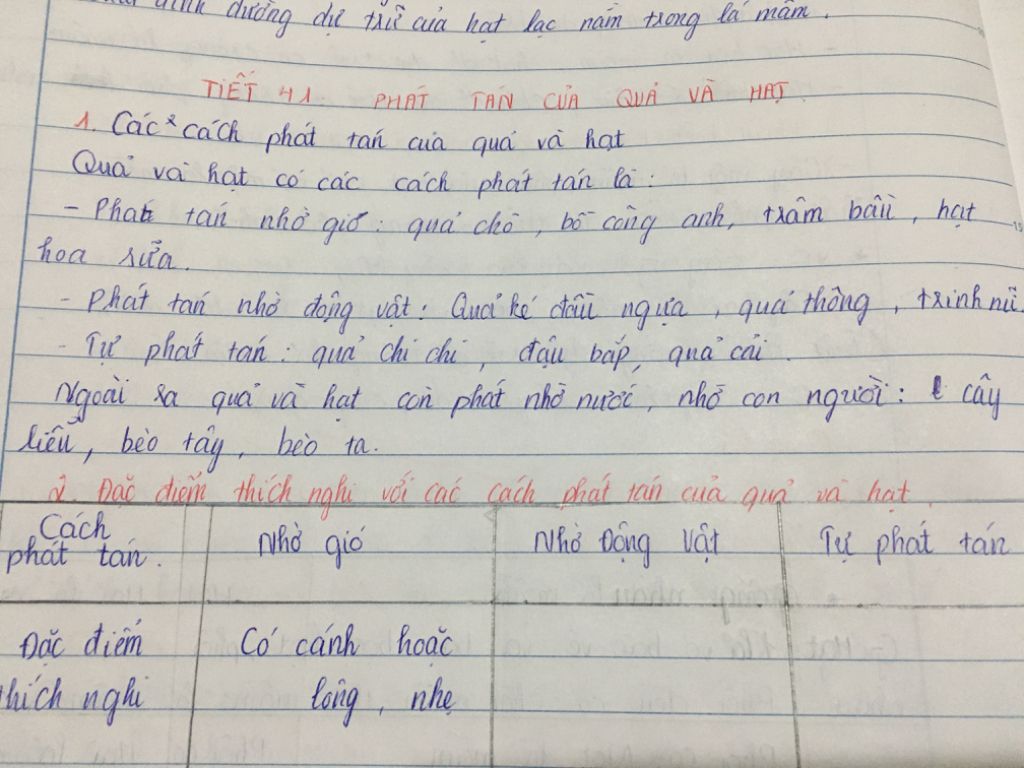 dinh dưỡng dự trữ của hạt lạc nằm trong lá mầm.
TIẾT 41 PHÁT TÁN CỦA QUẢ VÀ HẠT
1. Các cách phát tán của quả và hạt
Quả và hạt có các cách phát tán là:
- Phát tán nhờ gió: quả chò, bồ công anh, trâm bầu, hạt
hoa sữa.
- Phát tán nhờ động vật: Quả ké đầu ngựa, quả thông, trinh nữ.
- Tự phát tán: quả chi chi, đậu bắp, quả cải.
Ngoài ra quả và hạt còn phát nhờ nước, nhờ con người: cây
liễu, bèo tây, bèo ta.
2. Đặc điểm thích nghi với các cách phát tán của quả và hạt.
Cách phát tán. Nhờ gió Nhờ Động vật Tự phát tán
Đặc điểm Có cánh hoặc
thích nghi lông, nhẹ